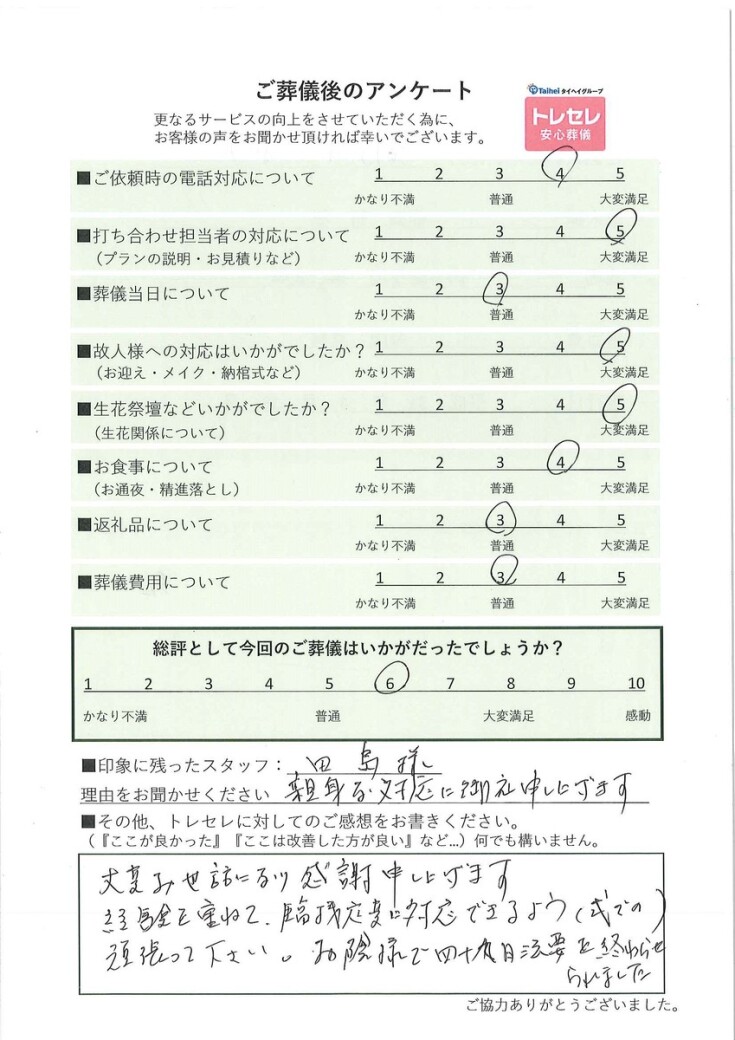 ご葬儀後のアンケート
Taihei タイヘイグループ
トレセレ
安心葬儀
更なるサービスの向上をさせていただく為に、
お客様の声をお聞かせ頂ければ幸いでございます。
■ご依頼時の電話対応について 1 2 3 4 5
かなり不満 普通 大変満足
■打ち合わせ担当者の対応について 1 2 3 4 5
（プランの説明・お見積りなど） かなり不満 普通 大変満足
■葬儀当日について 1 2 3 4 5
かなり不満 普通 大変満足
■故人様への対応はいかがでしたか？ 1 2 3 4 5
（お迎え・メイク・納棺式など） かなり不満 普通 大変満足
■生花祭壇などいかがでしたか？ 1 2 3 4 5
（生花関係について） かなり不満 普通 大変満足
■お食事について 1 2 3 4 5
（お通夜・精進落とし） かなり不満 普通 大変満足
■返礼品について 1 2 3 4 5
かなり不満 普通 大変満足
■葬儀費用について 1 2 3 4 5
かなり不満 普通 大変満足
総評として今回のご葬儀はいかがだったでしょうか？
1 2 3 4 5 6 7 8 9 10
かなり不満 普通 大変満足 感動
■印象に残ったスタッフ： 田島様
理由をお聞かせください 親身な対応に御礼申し上げます
■その他、トレセレに対してのご感想をお書きください。
（『ここが良かった』『ここは改善した方が良い』など…）何でも構いません。
大変お世話になり感謝申し上げます
経験を重ねて、臨機応変に対応できるよう（式での）
頑張って下さい。お陰様で四十九日法要を終わらせ
られました
ご協力ありがとうございました。